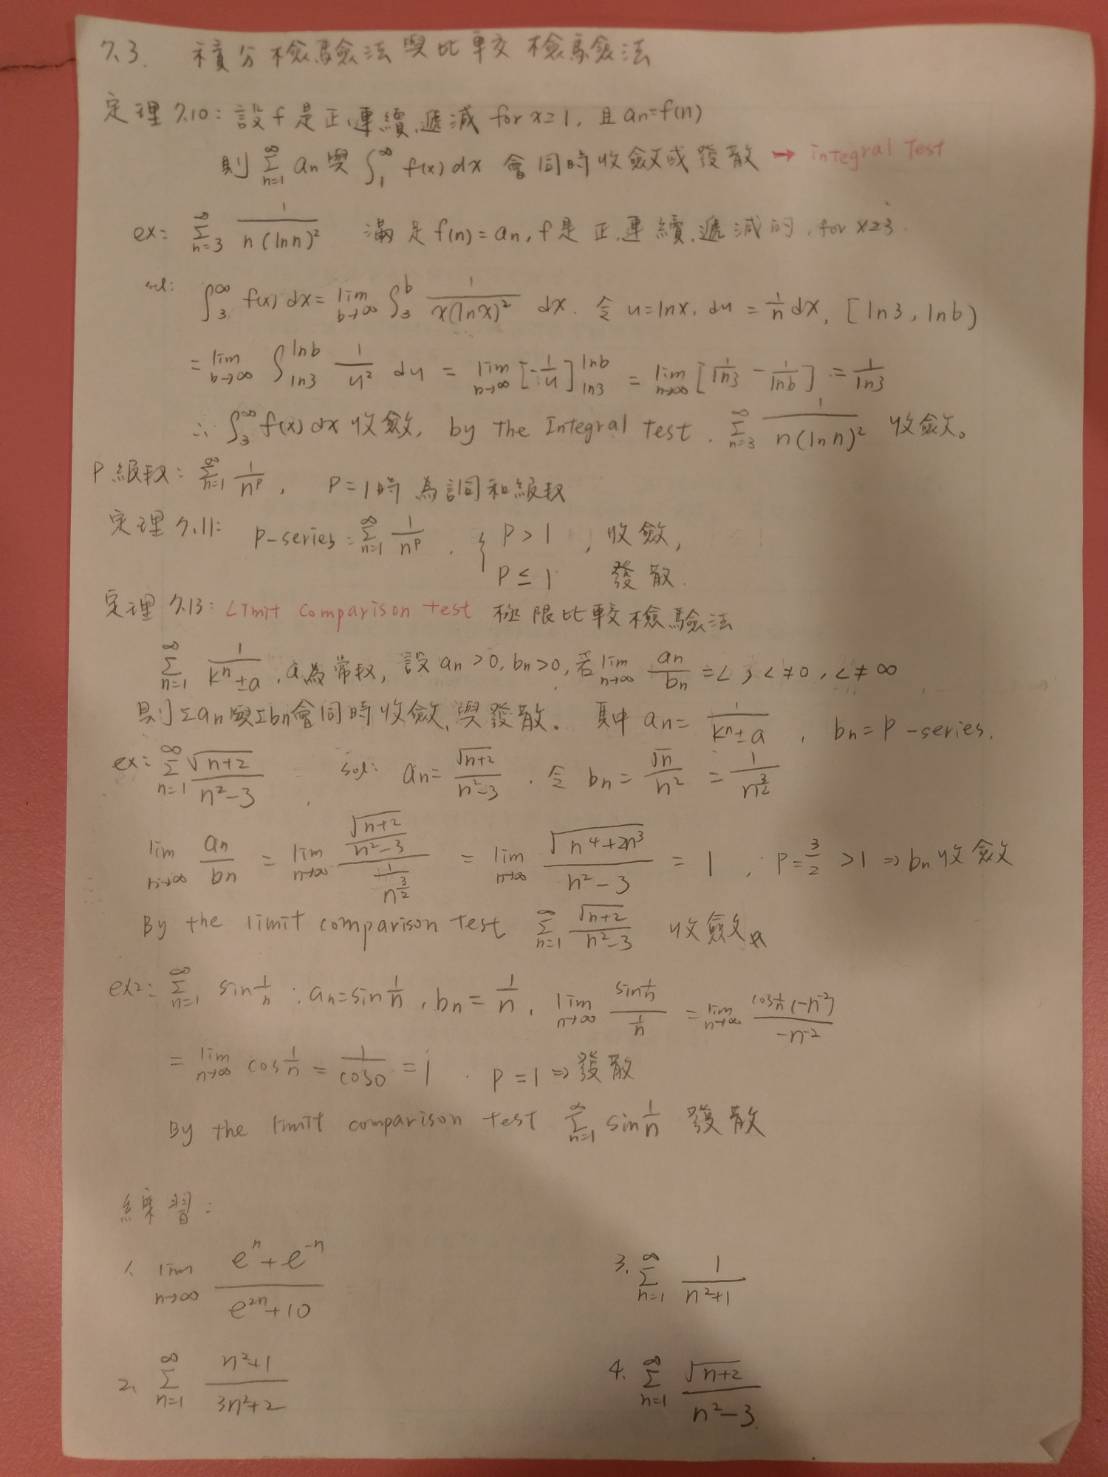 7.3. 積分檢驗法與比較檢驗法
定理7.10: 設f是正,連續,遞減 for x≥1, 且 an=f(n)
則 ∑_{n=1}^{∞} an 與 ∫_1^∞ f(x) dx 會同時收斂或發散 → integral Test
ex: ∑_{n=3}^{∞} 1/(n(ln n)^2) 滿足 f(n)=an, f是正,連續,遞減的, for x≥3.
sol: ∫_3^∞ f(x) dx = lim_{b→∞} ∫_3^b 1/(x(lnx)^2) dx. 令 u=lnx, du=1/n dx, [ln3, lnb)
= lim_{b→∞} ∫_{ln3}^{lnb} 1/u^2 du = lim_{n→∞} [-1/u]_{ln3}^{lnb} = lim_{n→∞} [1/ln3 - 1/lnb] = 1/ln3
∴ ∫_3^∞ f(x) dx 收斂, by the Integral test, ∑_{n=3}^{∞} 1/(n(ln n)^2) 收斂。
P級数: ∑_{n=1}^{∞} 1/n^p, P=1時為調和級数
定理7.11: p-series: ∑_{n=1}^{∞} 1/n^p, { P>1, 收斂,
P≤1 發散.
定理7.13: Limit comparison test 極限比較檢驗法
∑_{n=1}^{∞} 1/(k^n±a), a為常数, 設 an>0, bn>0, 若 lim_{n→∞} an/bn = L, L≠0, L≠∞
則∑an與∑bn會同時收斂與發散。 其中 an= 1/(k^n±a), bn=P-series.
ex: ∑_{n=1}^{∞} √(n+2)/(n^2-3), sol: an= √(n+2)/(n^2-3), 令 bn= √n/n^2 = 1/n^{3/2}
lim_{n→∞} an/bn = lim_{n→∞} (√(n+2)/(n^2-3))/(1/n^{3/2}) = lim_{n→∞} √(n^4+2n^3)/(n^2-3) = 1, P=3/2>1 ⇒ bn收斂
By the limit comparison test ∑_{n=1}^{∞} √(n+2)/(n^2-3) 收斂
ex2: ∑_{n=1}^{∞} sin 1/n : an=sin 1/n, bn= 1/n, lim_{n→∞} (sin 1/n)/(1/n) = lim_{n→∞} (cos 1/n (-n^{-2}))/(-n^{-2})
= lim_{n→∞} cos 1/n = 1/cos0 = 1. P=1 ⇒ 發散
By the limit comparison test ∑_{n=1}^{∞} sin 1/n 發散
練習:
1. lim_{n→∞} (e^n+e^{-n})/(e^{2n}+10)
2. ∑_{n=1}^{∞} (n^2+1)/(3n^2+2)
3. ∑_{n=1}^{∞} 1/(n^2+1)
4. ∑_{n=1}^{∞} √(n+2)/(n^2-3)